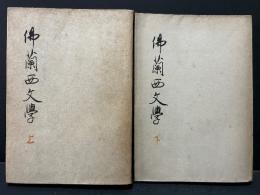 佛蘭西文學
上
佛蘭西文學
下